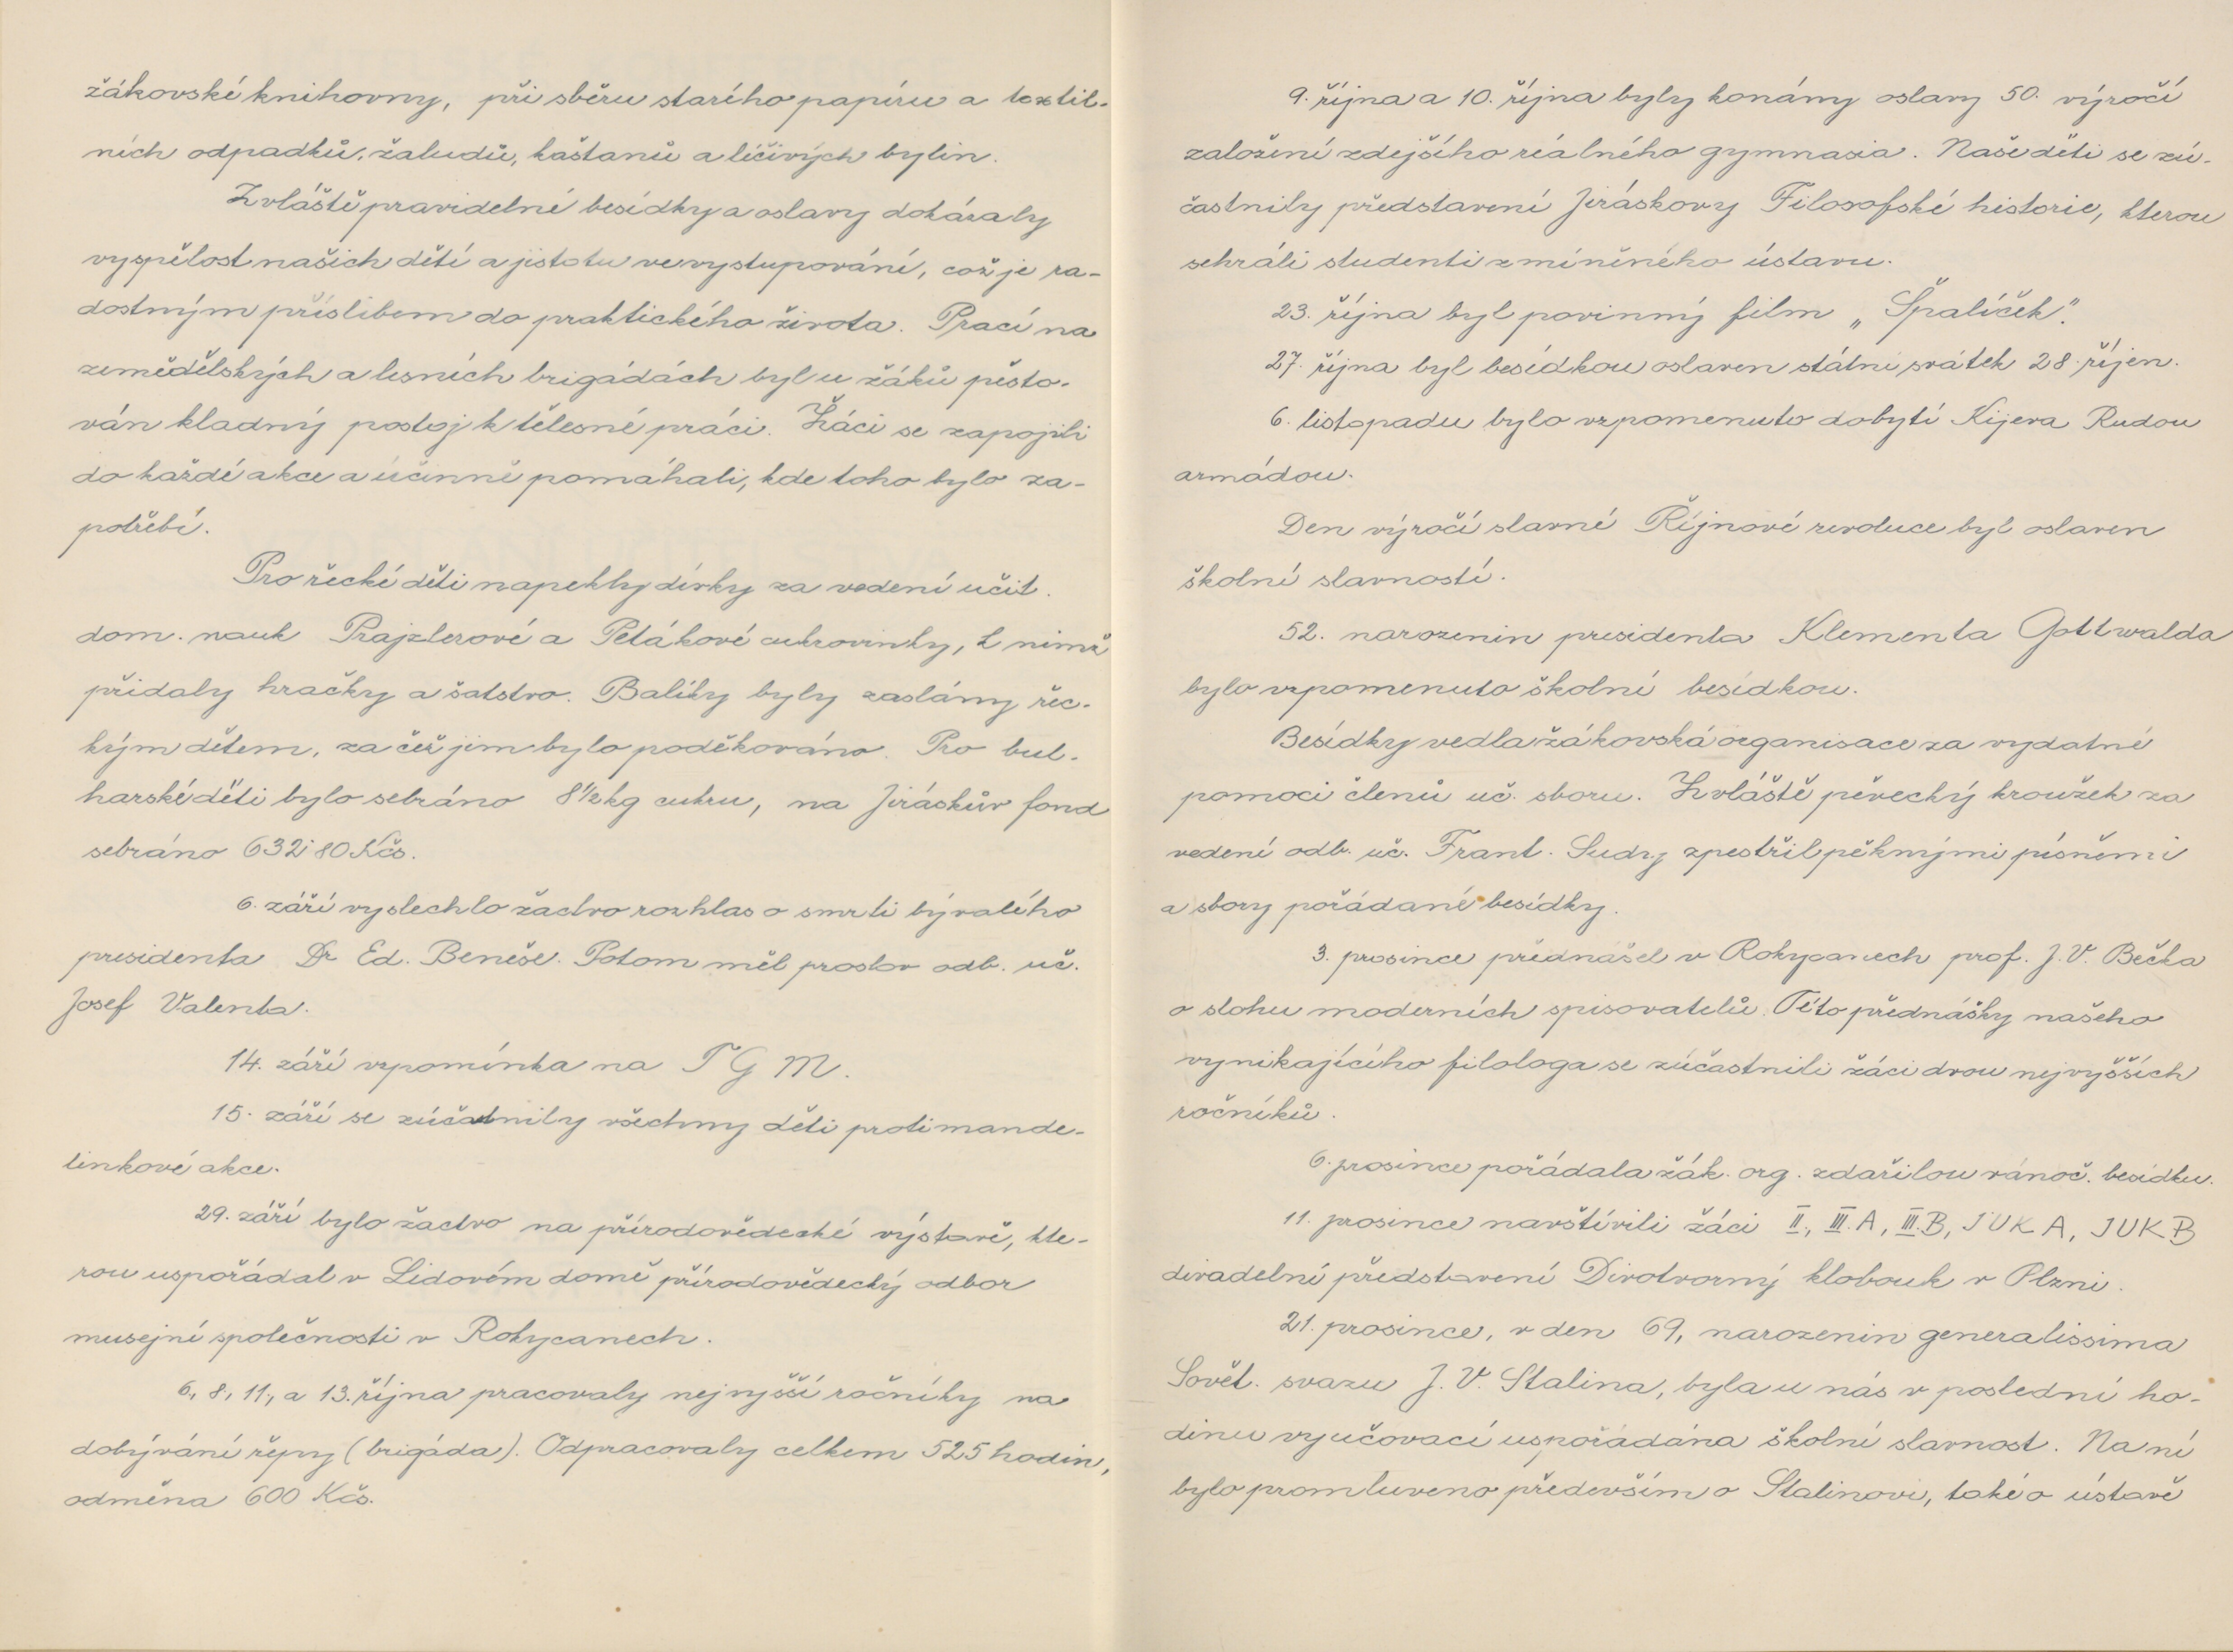 žákovské knihovny, při sběru starého papíru a textil-
ních odpadků, žaludů, kaštanů a léčivých bylin.
Zvláště pravidelné besídky a oslavy dokázaly
vyspělost našich dětí a jistotu ve vystupování, což je ra-
dostným příslibem do praktického života. Prací na
zemědělských a lesních brigádách byl u žáků pěsto-
ván kladný postoj k tělesné práci. Žáci se zapojili
do každé akce a účinně pomáhali, kde toho bylo za-
potřebí.
Pro řecké děti napekly dívky za vedení učit.
dom. nauk Prajzlerové a Petákové cukrovinky, k nimž
přidaly hračky a šatstvo. Balíky byly zaslány řec-
kým dětem, za čež jim bylo poděkováno. Pro bul-
harské děti bylo sebráno 8½ kg cukru, na Jiráskův fond
sebráno 632·80 Kčs.
6. září vyslechlo žactvo rozhlas o smrti bývalého
presidenta Dr Ed. Beneše. Potom měl proslov odb. uč.
Josef Valenta.
14. září vzpomínka na T G M.
15. září se zúčastnily všechny děti protimande-
linkové akce.
29. září bylo žactvo na přírodovědecké výstavě, kte-
rou uspořádal v Lidovém domě přírodovědecký odbor
musejní společnosti v Rokycanech.
6., 8., 11., a 13. října pracovaly nejvyšší ročníky na
dobývání řepy (brigáda). Odpracovaly celkem 525 hodin,
odměna 600 Kčs.
9. října a 10. října byly konány oslavy 50. výročí
založení zdejšího reálného gymnasia. Naše děti se zú-
častnily představení Jiráskovy Filosofské historie, kterou
sehráli studenti zmíněného ústavu.
23. října byl povinný film „Špalíček".
27. října byl besídkou oslaven státní svátek 28. říjen.
6. listopadu bylo vzpomenuto dobytí Kijeva Rudou
armádou.
Den výročí slavné Říjnové revoluce byl oslaven
školní slavností.
52. narozenin presidenta Klementa Gottwalda
bylo vzpomenuto školní besídkou.
Besídky vedla žákovská organisace za vydatné
pomoci členů uč. sboru. Zvláště pěvecký kroužek za
vedení odb. uč. Frant. Sudy zpestřil pěknými písněmi
a sbory pořádané besídky.
3. prosince přednášel v Rokycanech prof. J. V. Bečka
o slohu moderních spisovatelů. Této přednášky našeho
vynikajícího filologa se zúčastnili žáci dvou nejvyšších
ročníků.
6. prosince pořádala žák. org. zdařilou vánoč. besídku.
11. prosince navštívili žáci II., III. A, III. B, JUK A, JUK B
divadelní představení Divotvorný klobouk v Plzni.
21. prosince, v den 69, narozenin generalissima
Sovět. svazu J. V. Stalina, byla u nás v poslední ho-
dinu vyučovací uspořádána školní slavnost. Na ní
bylo promluveno především o Stalinovi, také o ústavě